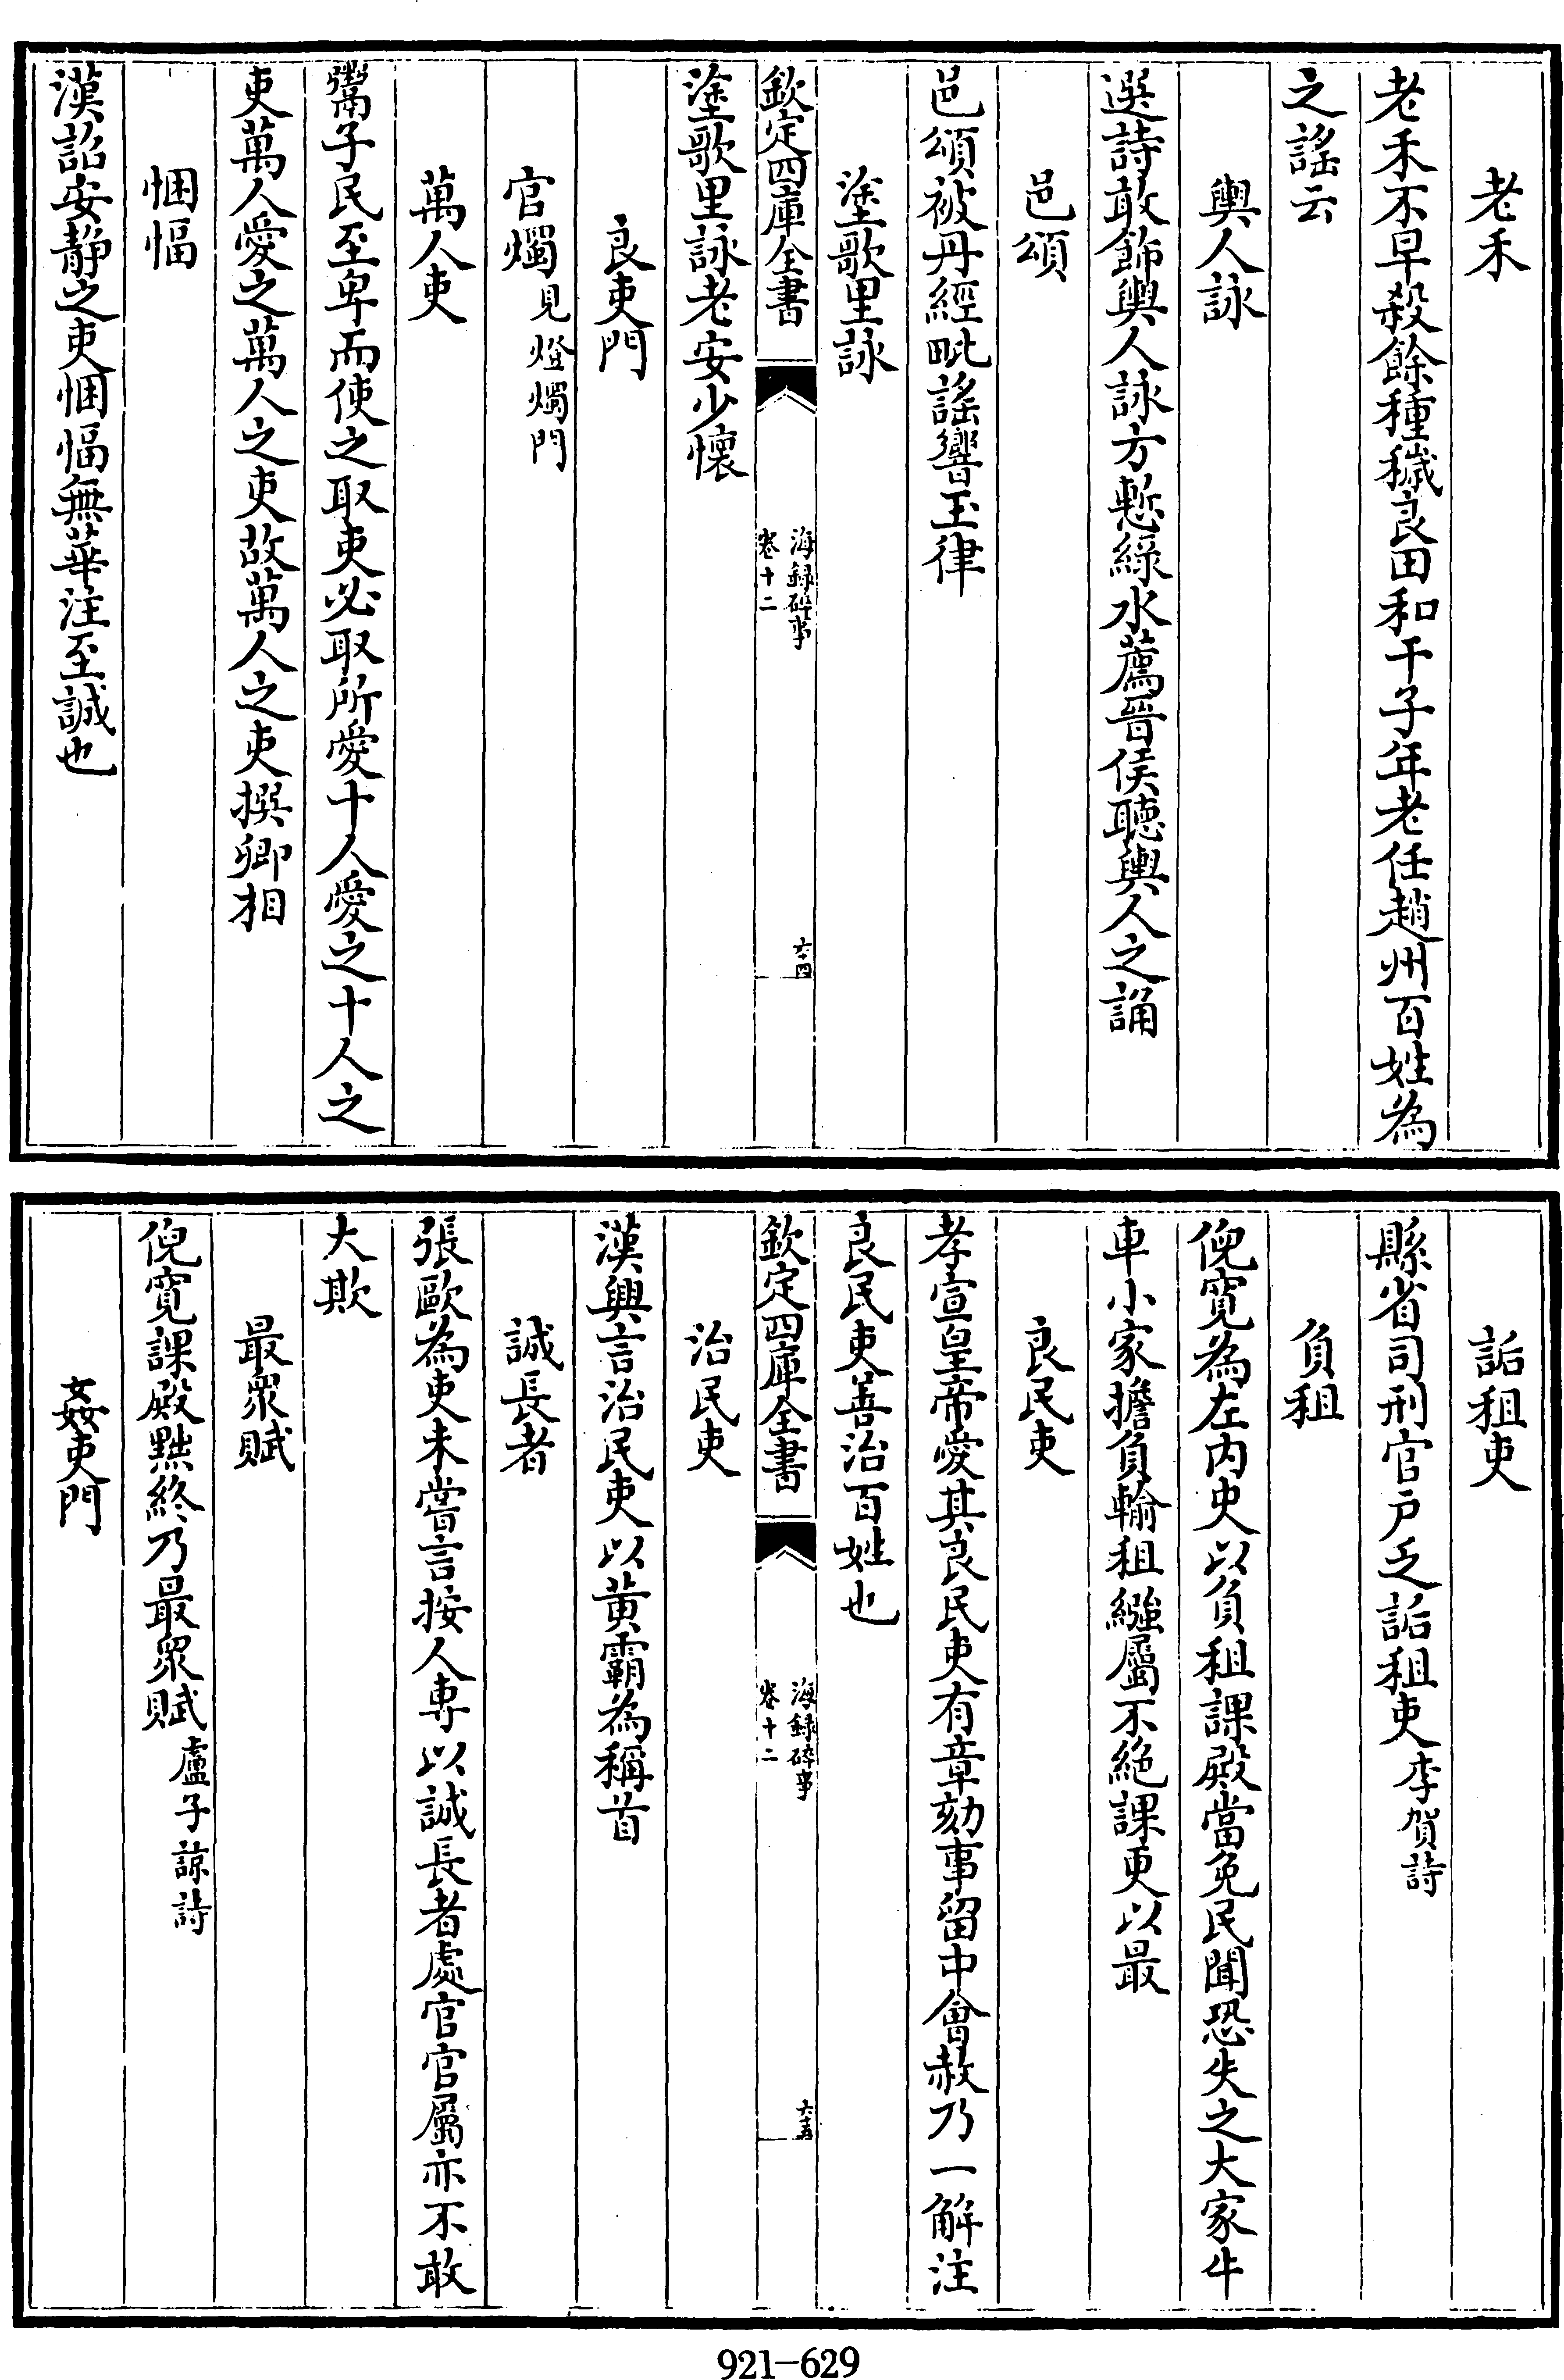 老禾
老禾不早殺餘種穢良田和干子年老任趙州百姓為
之謠云
輿人詠
選詩敢飾輿人詠方慙綠水薦晉侯聽輿人之誦
邑頌
邑頌被丹經甿謠響玉律
塗歌里詠
欽定四庫全書
海録碎事
卷十二
六十四
塗歌里詠老安少懷
良吏門
官燭見燈燭門
萬人吏
鬻子民至卑而使之取吏必取所愛十人愛之十人之
吏萬人愛之萬人之吏故萬人之吏撰卿相
悃愊
漢詔安靜之吏悃愊無華注至誠也
詬租吏
縣省司刑官戶乏詬租吏李賀詩
負租
倪寛為左内史以負租課殿當免民聞恐失之大家牛
車小家擔負輸租繦屬不絶課更以最
良民吏
孝宣皇帝愛其良民吏有章劾事留中會赦乃一解注
良民吏善治百姓也
欽定四庫全書
海録碎事
卷十二
六十五
治民吏
漢興言治民吏以黄霸為稱首
誠長者
張歐為吏未嘗言按人專以誠長者處官官屬亦不敢
大欺
最衆賦
倪寛課殿黜終乃最衆賦盧子諒詩
姦吏門
921-629